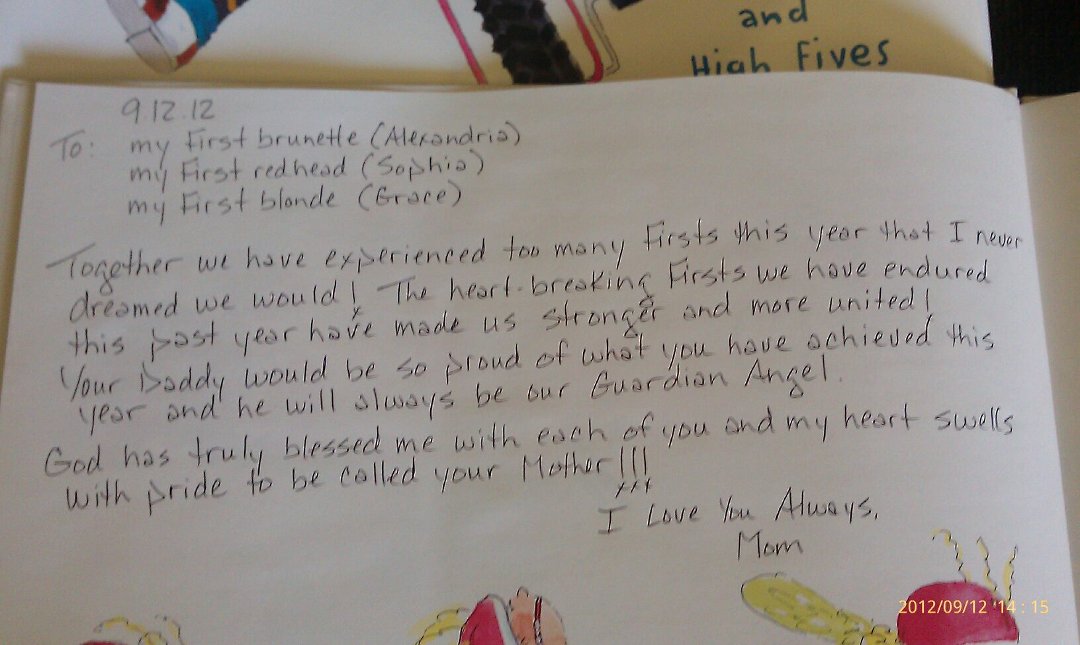 and
High Fives
9.12.12
To: my First brunette (Alexandria)
my First redhead (Sophia)
my First blonde (Grace)
Together we have experienced too many Firsts this year that I never
dreamed we would! The heart-breaking Firsts we have endured
this past year have made us stronger and more united!
Your Daddy would be so proud of what you have achieved this
year and he will always be our Guardian Angel.
God has truly blessed me with each of you and my heart swells
with pride to be called your Mother!!!
I Love You Always,
Mom
2012/09/12 14:15